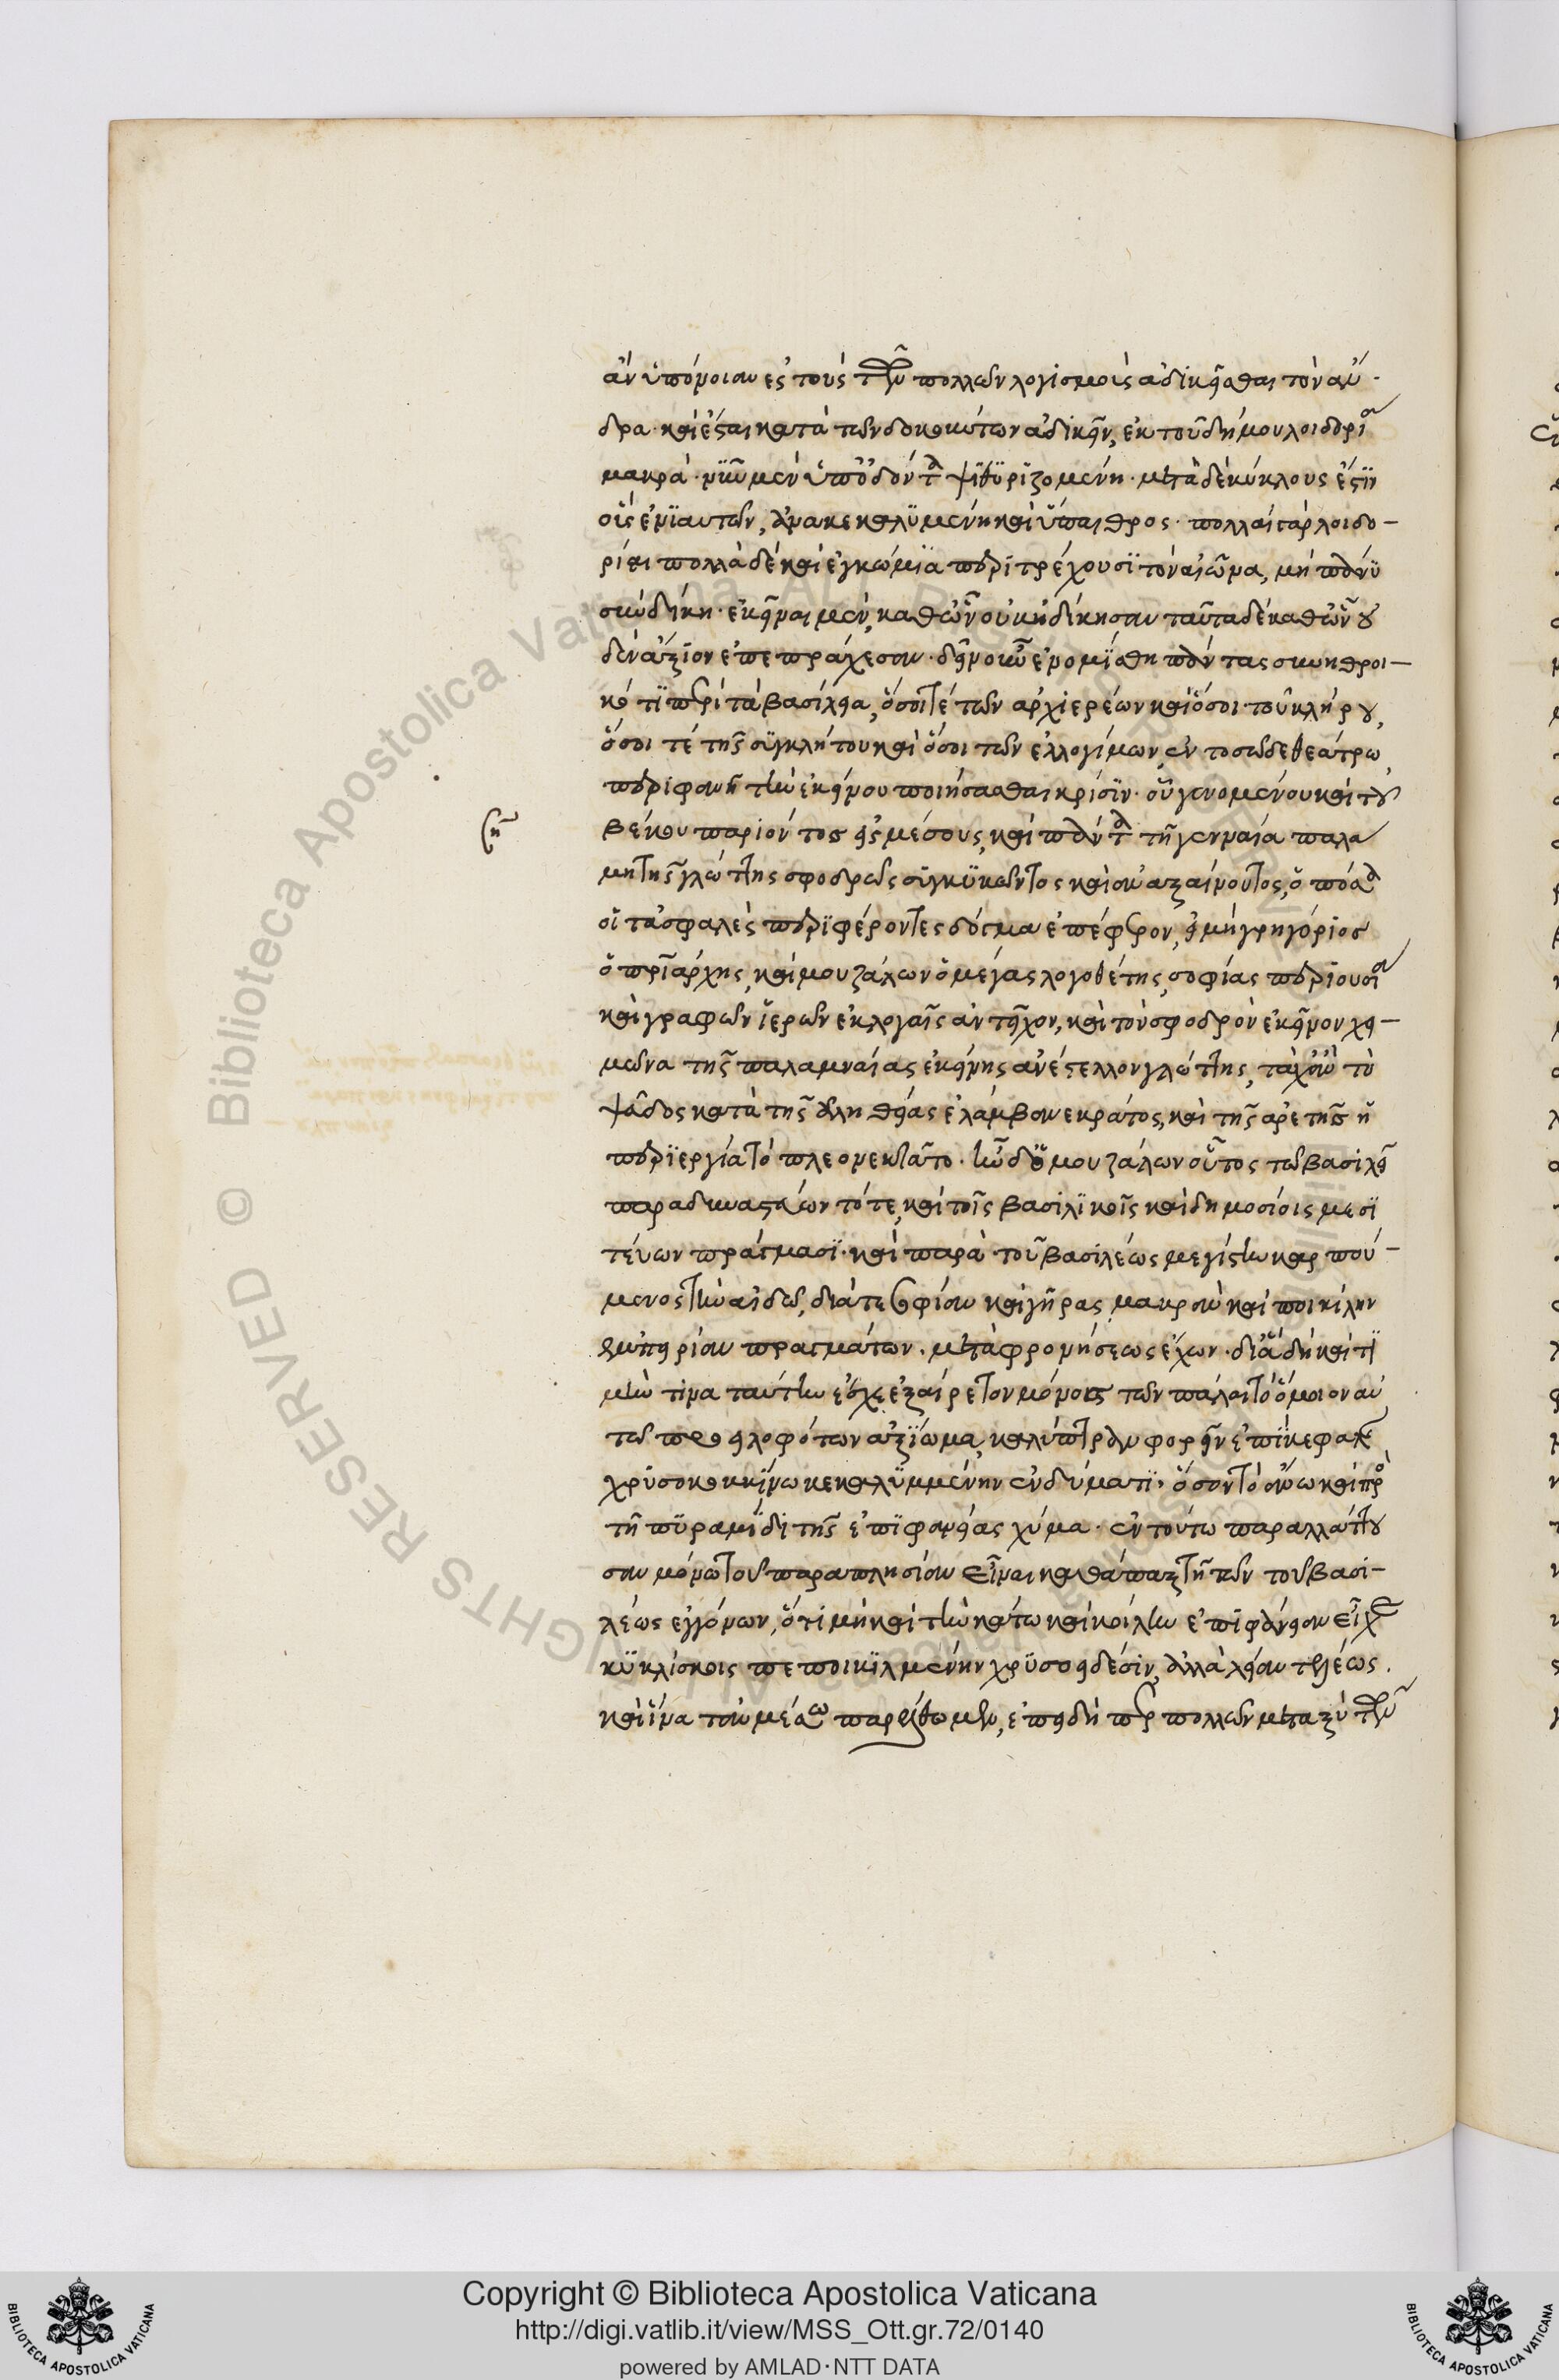 ἂν ὑπόνοιαν ἐς τοὺς τῶν πολλῶν λογισμοὺς ἀδικεῖσθαι τὸν ἄν
δρα· καὶ ἔσται κατὰ τῶν δοκούντων ἀδικεῖν, ἐκ τοῦ δήμου λοιδορία
μακρὰ· νῦν μὲν ὑπ' ὀδόντα ψιθυριζομένη· μετὰ δὲ κύκλους ἔστιν
οὓς ἐνιαυτῶν, ἀνακεκαλυμένη καὶ ὕπαιθρος· πολλαὶ γὰρ λοιδο-
ρίαι πολλὰ δὲ καὶ ἐγκώμια περιτρέχουσι τὸν αἰῶνα, μὴ πάνυ
σὺν δίκῃ· ἐκεῖναι μὲν, καθ' ὧν οὐκ ἠδίκησαν ταῦτα δὲ καθ' ὧν οὐ
δὲν ἄξιον ἐπεπράχεσαν· δεῖν οὖν ἐνομίσθη πάντας συνηθροι-
κότι περὶ τὰ βασίλεια, ὅσοι τὲ τῶν ἀρχιερέων καὶ ὅσοι τοῦ κλήρου,
ὅσοι τὲ τῆς συγκλήτου καὶ ὅσοι τῶν ἐλλογίμων, ἐν τοσῷδε θεάτρῳ
περιφανῆ τὴν ἐκείνου ποιήσασθαι κρίσιν· οὗ γενομένου καὶ τοῦ
βέκου παριόντος εἰς μέσους, καὶ πάντα τῇ γενναία παλα
μῃ τῆς γλώττης σφοδρῶς συγκυκῶντος καὶ συναξαίνοντος, ὁπόσα
οἱ τἀσφαλὲς περιφέροντες δόγμα ἐπέφερον, εἰ μὴ γρηγόριος
ὁ πριάρχης, καὶ μουζάλων ὁ μέγας λογοθέτης, σοφίας περιουσία
καὶ γραφῶν ἱερῶν ἐκλογαῖς ἀντεῖχον, καὶ τὸν σφοδρὸν ἐκεῖνον χει-
μῶνα τῆς παλαμναίας ἐκείνης ἀνέστελλον γλώττης, τάχ' ἂν τὸ
ψεῦδος κατὰ τῆς ἀληθείας ἐλάμβανε κράτος, καὶ τῆς ἀρετῆς ἡ
περιεργία τὸ πλεονεκτῆτο· ἦν δ' ὁ μουζάλων οὗτος τῷ βασιλεῖ
παραδυναστεύων τότε, καὶ τοῖς βασιλικοῖς καὶ δημοσίοις μεσι
τεύων πράγμασι· καὶ παρὰ τοῦ βασιλέως μεγίστην καρπού-
μενος τὴν αἰδῶ, διά τε σοφίαν καὶ γῆρας μακρὸν καὶ ποικίλην
ἐμπειρίαν πραγμάτων· μετὰ φρονήσεως ἔχων· διὰ δὴ καὶ τι
μήν τινα ταύτην ἔσχε ἐξαίρετον μόνος τῶν πάλαι τὸ ὅμοιον αὐ
τῷ προειληφότων ἀξίωμα, καλύπτραν φορεῖν ἐπὶ κεφαλῆς
χρυσοκοκκίνῳ κεκαλυμμένην ἐνδύματι· ὅσον τὸ ἄνω καὶ πρὸς
τῇ πυραμίδι τῆς ἐπιφανείας χύμα· ἐν τούτῳ παραλλάττου
σαν μόνῳ τοῦ παραπλησίαν εἶναι καθάπαξ τῇ τῶν τοῦ βασι-
λέως ἐγγόνων, ὅτι μὴ καὶ τὴν κάτω καὶ κοίλην ἐπιφάνειαν εἶχε
κυκλίσκοις πεποικιλμένην χρυσοειδέσιν, ἀλλὰ λείαν τελέως.
καὶ ἵνα τἀν μέσῳ παρείδωμεν, ἐπειδὴ περ πολλῶν μεταξὺ τῶν